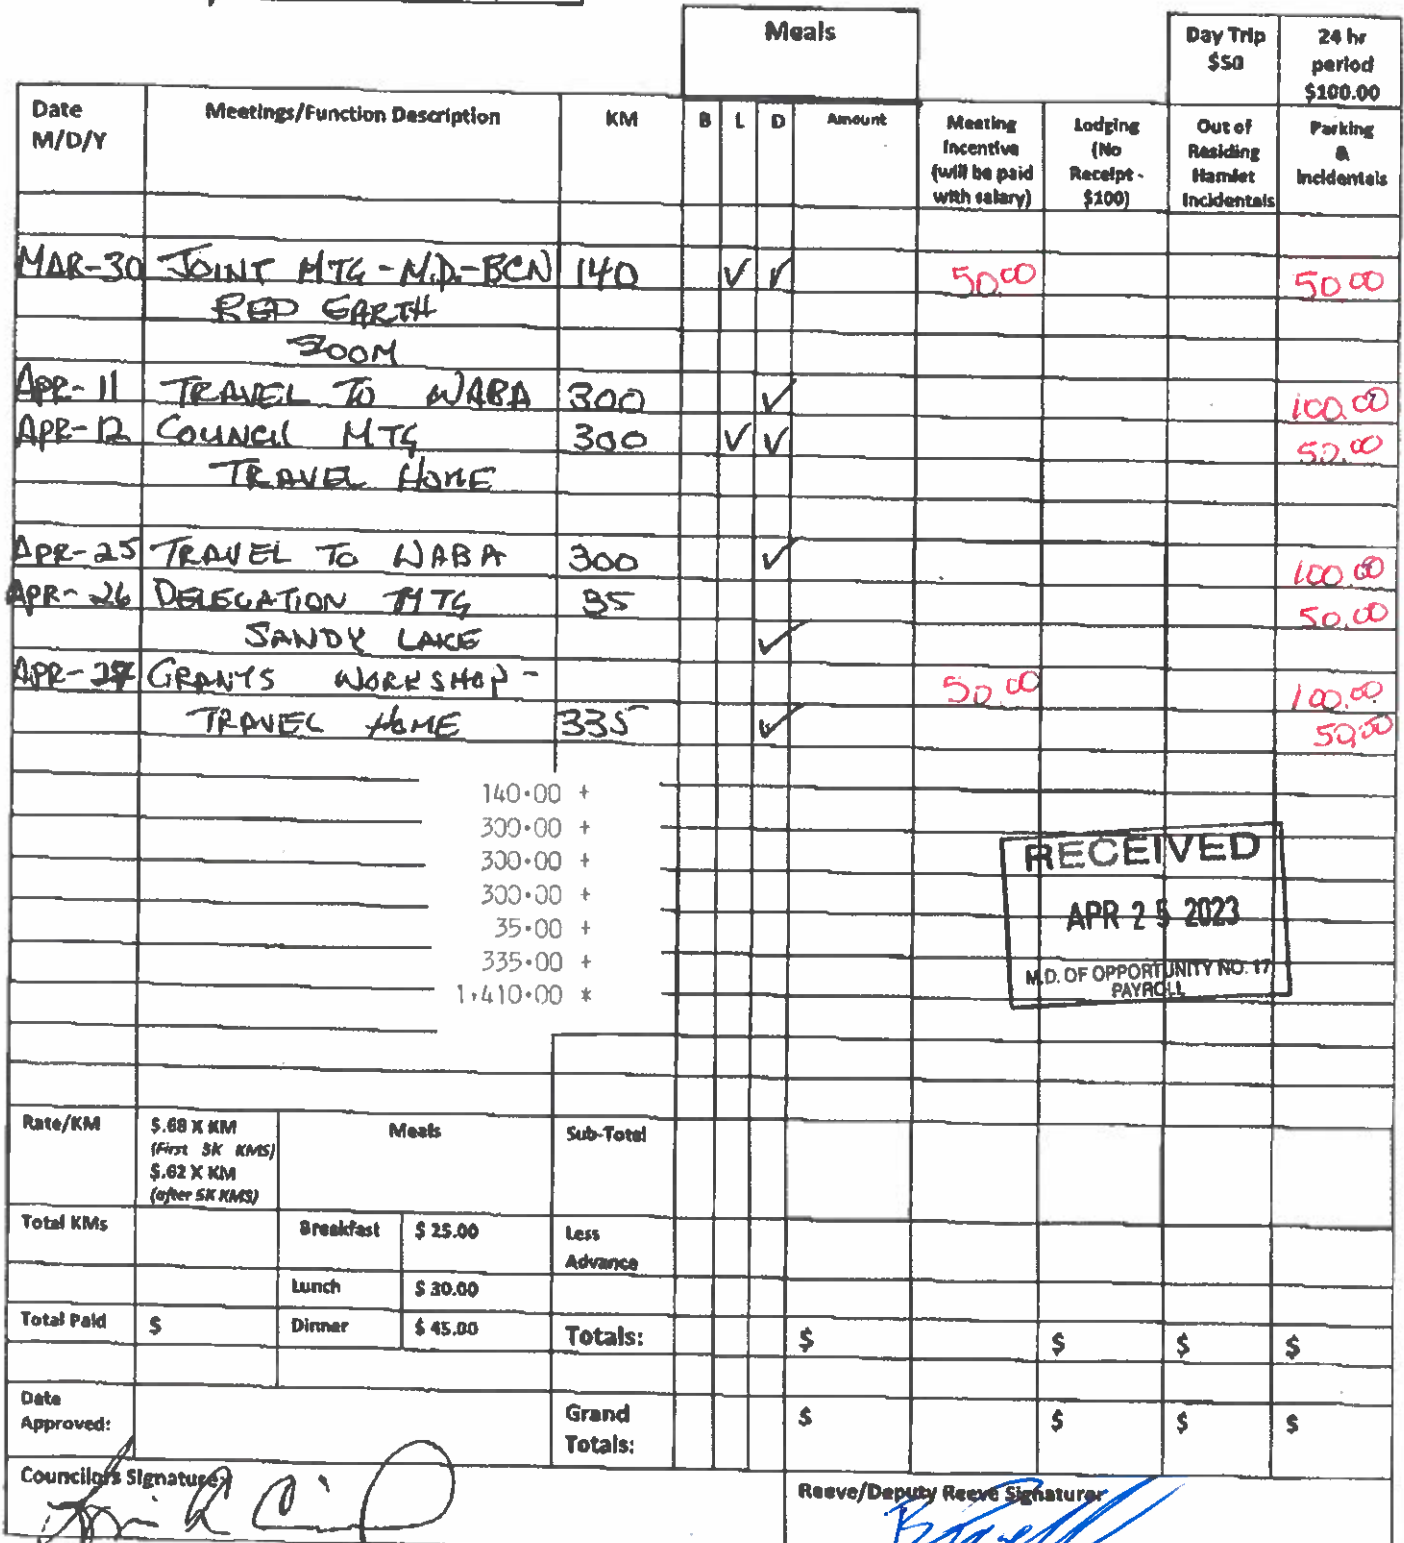 Meals
Day Trip $50
24 hr period $100.00
Date M/D/Y
Meetings/Function Description
KM
B L D
Amount
Meeting Incentive (will be paid with salary)
Lodging (No Receipt - $100)
Out of Residing Hamlet Incidentals
Parking & Incidentals
MAR-30 JOINT MTG - M.D.-BCN 140 ✓ ✓ 50.00 50.00
RED EARTH
ZOOM
APR-11 TRAVEL TO WABA 300 ✓ 100.00
APR-12 COUNCIL MTG 300 ✓ ✓ 50.00
TRAVEL HOME
APR-25 TRAVEL TO WABA 300 ✓ 100.00
APR-26 DELEGATION MTG 35 50.00
SANDY LAKE ✓
APR-27 GRANTS WORKSHOP - 50.00 100.00
TRAVEL HOME 335 ✓ 50.00
140.00 +
300.00 +
300.00 +
300.00 +
35.00 +
335.00 +
1,410.00 *
RECEIVED
APR 25 2023
M.D. OF OPPORTUNITY NO. 17
PAYROLL
Rate/KM
$.68 X KM
(First 5K KMS)
$.62 X KM
(after 5K KMS)
Meals
Sub-Total
Total KMs
Breakfast $ 25.00
Less Advance
Lunch $ 30.00
Total Paid $
Dinner $ 45.00
Totals: $ $ $ $
Date Approved:
Grand Totals: $ $ $ $
Councilors Signature
Reeve/Deputy Reeve Signature